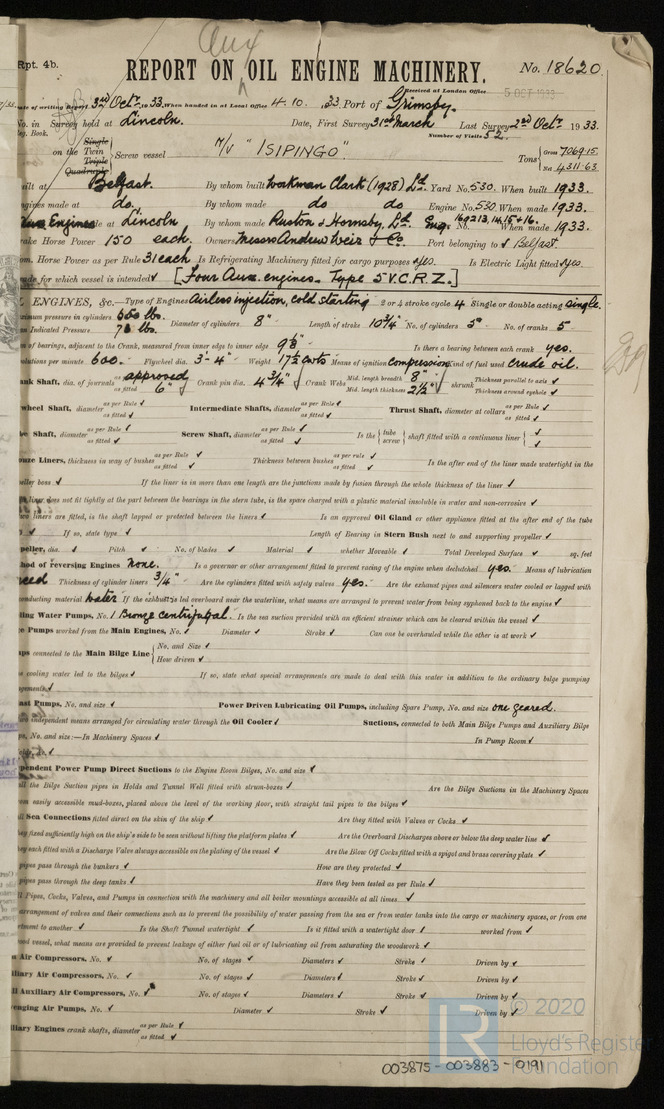 Rpt. 4b.
Aux
REPORT ON OIL ENGINE MACHINERY.
No. 18620
Received at London Office
5 OCT 1933
ate of writing Report 3rd Octr 1933. When handed in at Local Office 4.10.33. Port of Grimsby.
No. in Survey held at Lincoln. Date, First Survey 31st March Last Survey 2nd Octr 1933.
eg. Book. Number of Visits 52.
on the Single Twin Triple Quadruple Screw vessel M/V "ISIPINGO" Tons Gross 7069.15 Net 4311.63
uilt at Belfast. By whom built Workman Clark (1928) Ld. Yard No. 530. When built 1933.
ngines made at do. By whom made do do Engine No. 530. When made 1933.
Aux Engines at Lincoln By whom made Ruston & Hornsby, Ld. Eng. No. 169213, 14, 15 + 16. When made 1933.
rake Horse Power 150 each. Owners Messrs Andrew Weir & Co. Port belonging to Belfast.
om. Horse Power as per Rule 31 each Is Refrigerating Machinery fitted for cargo purposes yes. Is Electric Light fitted yes.
rade for which vessel is intended ✓ [Four Aux. engines - Type 5 V.C.R.Z.]
L ENGINES, &c.—Type of Engines Airless injection, cold starting 2 or 4 stroke cycle 4 Single or double acting single.
aximum pressure in cylinders lbs. Diameter of cylinders 8" Length of stroke 10 3/4" No. of cylinders 5 No. of cranks 5
an Indicated Pressure lbs.
n of bearings, adjacent to the Crank, measured from inner edge to inner edge Is there a bearing between each crank yes.
olutions per minute 600. Flywheel dia. 3'-4" Weight 17½ cwts Means of ignition compression Kind of fuel used crude oil.
ank Shaft, dia. of journals as approved as fitted 6" Crank pin dia. 4 3/4" Crank Webs Mid. length breadth 8" Mid. length thickness 2½" shrunk Thickness parallel to axis ✓ Thickness around eyehole ✓
wheel Shaft, diameter as per Rule ✓ as fitted ✓ Intermediate Shafts, diameter as per Rule ✓ as fitted ✓ Thrust Shaft, diameter at collars as per Rule ✓ as fitted ✓
be Shaft, diameter as per Rule ✓ as fitted ✓ Screw Shaft, diameter as per Rule ✓ as fitted ✓ Is the tube screw shaft fitted with a continuous liner ✓
onze Liners, thickness in way of bushes as per Rule ✓ as fitted ✓ Thickness between bushes as per rule ✓ as fitted ✓ Is the after end of the liner made watertight in the
eller boss ✓ If the liner is in more than one length are the junctions made by fusion through the whole thickness of the liner ✓
liner does not fit tightly at the part between the bearings in the stern tube, is the space charged with a plastic material insoluble in water and non-corrosive ✓
wo liners are fitted, is the shaft lapped or protected between the liners ✓ Is an approved Oil Gland or other appliance fitted at the after end of the tube
✓ If so, state type ✓ Length of Bearing in Stern Bush next to and supporting propeller ✓
peller, dia. ✓ Pitch ✓ No. of blades ✓ Material ✓ whether Moveable ✓ Total Developed Surface ✓ sq. feet
hod of reversing Engines None. Is a governor or other arrangement fitted to prevent racing of the engine when declutched yes. Means of lubrication
Thickness of cylinder liners 3/4" Are the cylinders fitted with safety valves yes. Are the exhaust pipes and silencers water cooled or lagged with
onducting material water If the exhaust is led overboard near the waterline, what means are arranged to prevent water from being syphoned back to the engine ✓
ling Water Pumps, No. 1 Bronze centrifugal. Is the sea suction provided with an efficient strainer which can be cleared within the vessel ✓
ge Pumps worked from the Main Engines, No. ✓ Diameter ✓ Stroke ✓ Can one be overhauled while the other is at work ✓
mps connected to the Main Bilge Line No. and Size ✓ How driven ✓
e cooling water led to the bilges ✓ If so, state what special arrangements are made to deal with this water in addition to the ordinary bilge pumping
gements ✓
ast Pumps, No. and size ✓ Power Driven Lubricating Oil Pumps, including Spare Pump, No. and size one geared.
wo independent means arranged for circulating water through the Oil Cooler ✓ Suctions, connected to both Main Bilge Pumps and Auxiliary Bilge
ps, No. and size:—In Machinery Spaces ✓ In Pump Room ✓
olds, &c. ✓
pendent Power Pump Direct Suctions to the Engine Room Bilges, No. and size ✓
ll the Bilge Suction pipes in Holds and Tunnel Well fitted with strum-boxes ✓ Are the Bilge Suctions in the Machinery Spaces
om easily accessible mud-boxes, placed above the level of the working floor, with straight tail pipes to the bilges ✓
ll Sea Connections fitted direct on the skin of the ship ✓ Are they fitted with Valves or Cocks ✓
hey fixed sufficiently high on the ship's side to be seen without lifting the platform plates ✓ Are the Overboard Discharges above or below the deep water line ✓
hey each fitted with a Discharge Valve always accessible on the plating of the vessel ✓ Are the Blow Off Cocks fitted with a spigot and brass covering plate ✓
pipes pass through the bunkers ✓ How are they protected ✓
pipes pass through the deep tanks ✓ Have they been tested as per Rule ✓
ll Pipes, Cocks, Valves, and Pumps in connection with the machinery and all boiler mountings accessible at all times ✓
arrangement of valves and their connections such as to prevent the possibility of water passing from the sea or from water tanks into the cargo or machinery spaces, or from one
rtment to another ✓ Is the Shaft Tunnel watertight ✓ Is it fitted with a watertight door ✓ worked from ✓
ood vessel, what means are provided to prevent leakage of either fuel oil or of lubricating oil from saturating the woodwork ✓
n Air Compressors, No. ✓ No. of stages ✓ Diameters ✓ Stroke ✓ Driven by ✓
iliary Air Compressors, No. ✓ No. of stages ✓ Diameters ✓ Stroke ✓ Driven by ✓
ll Auxiliary Air Compressors, No. ✓ No. of stages ✓ Diameters ✓ Stroke ✓ Driven by ✓
enging Air Pumps, No. ✓ Diameter ✓ Stroke ✓ Driven by ✓
iliary Engines crank shafts, diameter as per Rule ✓ as fitted ✓
LR © 2020 Lloyd's Register Foundation
003875-003883-0191